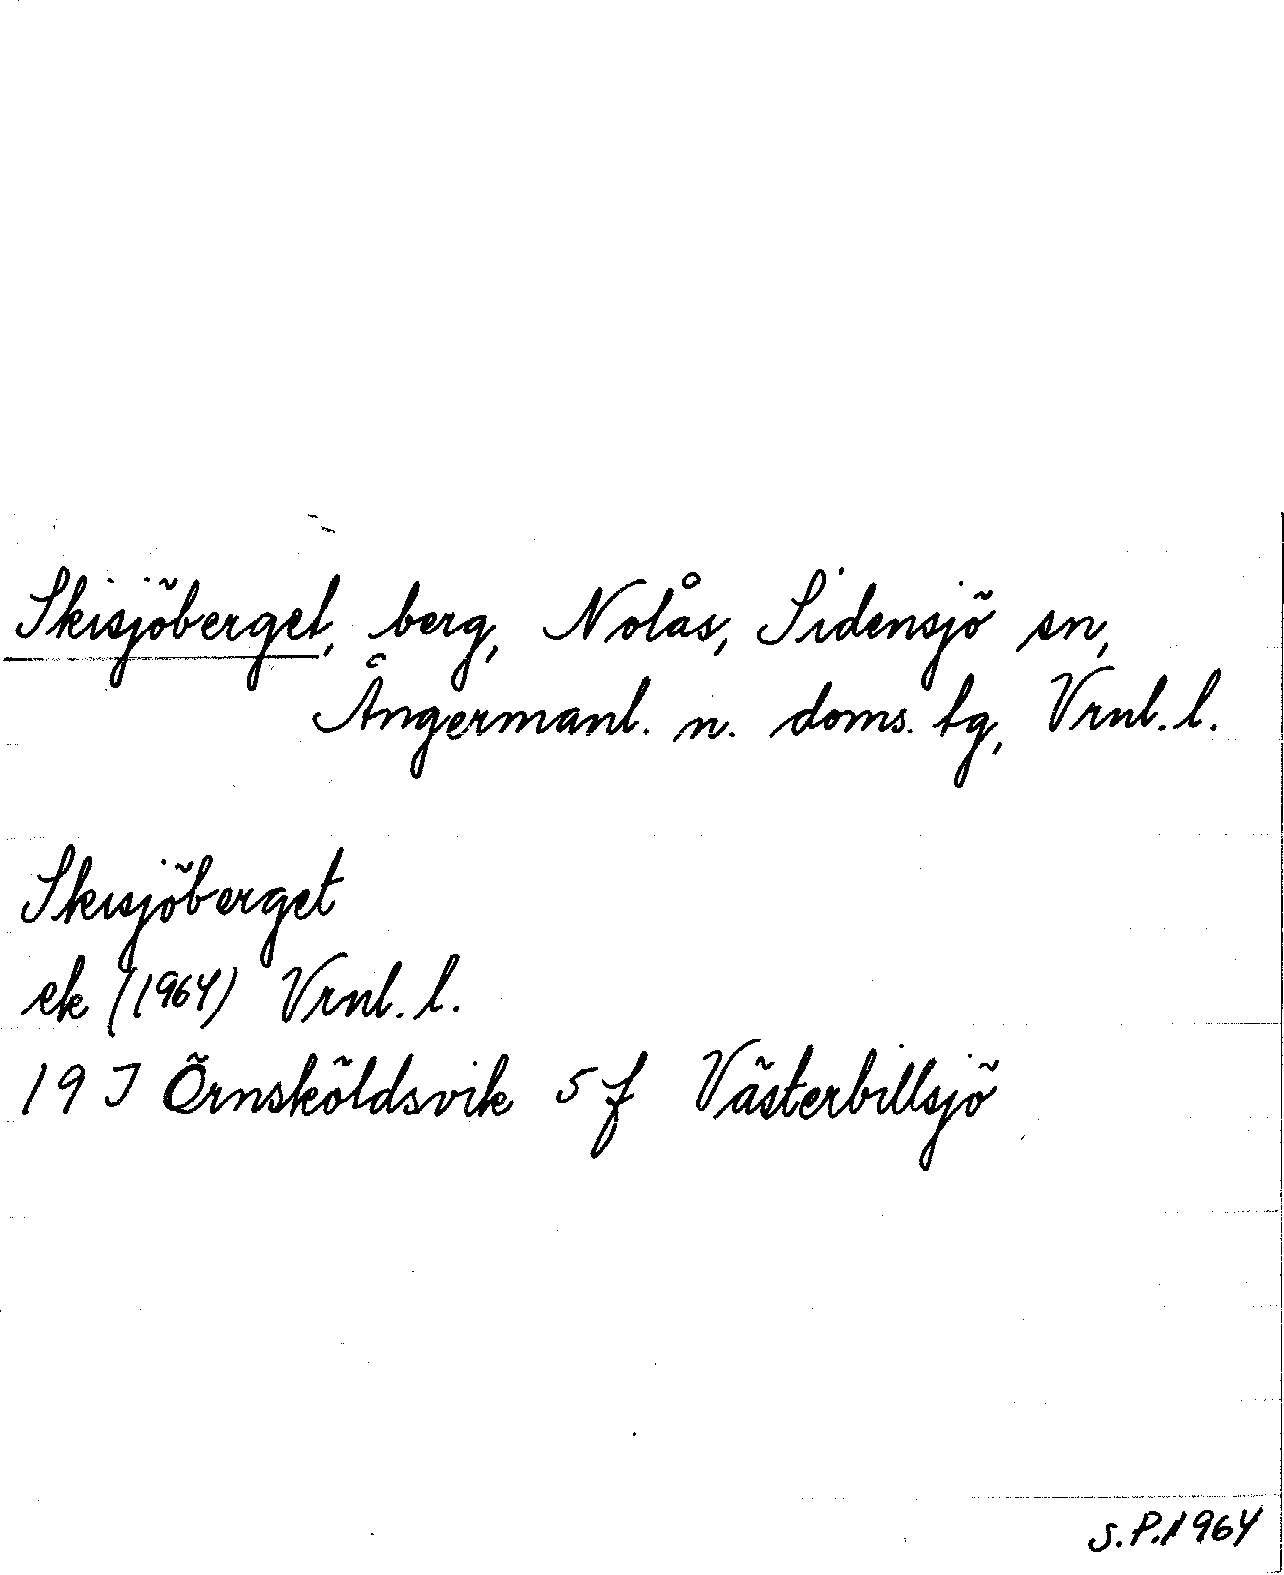 Skisjöberget, berg, Nolås, Sidensjö sn,
Ångermanl. n. doms. tg, Vrnl. l.
Skisjöberget
ek (1964) Vrnl. l.
19 J Örnsköldsvik 5 f Västerbillsjö
S.P. 1964